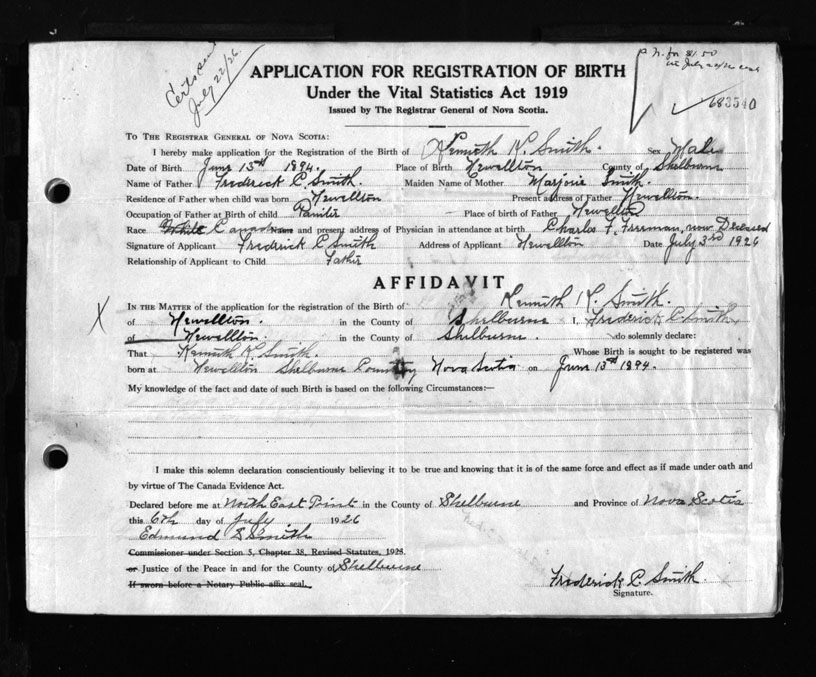 Certs sent
July 22/26.
683540
APPLICATION FOR REGISTRATION OF BIRTH
Under the Vital Statistics Act 1919
Issued by The Registrar General of Nova Scotia.
TO THE REGISTRAR GENERAL OF NOVA SCOTIA:
I hereby make application for the Registration of the Birth of Kenneth K. Smith. Sex Male
Date of Birth June 13th 1894. Place of Birth Newellton County of Shelburne
Name of Father Fredrick C. Smith. Maiden Name of Mother Marjorie Smith.
Residence of Father when child was born Newellton Present address of Father Newellton.
Occupation of Father at Birth of child Painter Place of birth of Father Newellton
Race White Canadian Name and present address of Physician in attendance at birth Charles F. Freeman, now Deceased
Signature of Applicant Fredrick C Smith Address of Applicant Newellton Date July 3rd 1926
Relationship of Applicant to Child Father
AFFIDAVIT
IN THE MATTER of the application for the registration of the Birth of Kenneth K. Smith.
X of Newellton. in the County of Shelburne I, Frederick C Smith,
of Newellton. in the County of Shelburne. do solemnly declare:
That Kenneth K. Smith. Whose Birth is sought to be registered was
born at Newellton Shelburne County Nova Scotia on June 13th 1894.
My knowledge of the fact and date of such Birth is based on the following Circumstances:—
I make this solemn declaration conscientiously believing it to be true and knowing that it is of the same force and effect as if made under oath and
by virtue of The Canada Evidence Act.
Declared before me at North East Point in the County of Shelburne and Province of Nova Scotia
this 6th day of July 1926
Edmund S Smith
Commissioner under Section 5, Chapter 38, Revised Statutes, 1923.
or Justice of the Peace in and for the County of Shelburne
If sworn before a Notary Public affix seal.
Frederick C. Smith.
Signature.